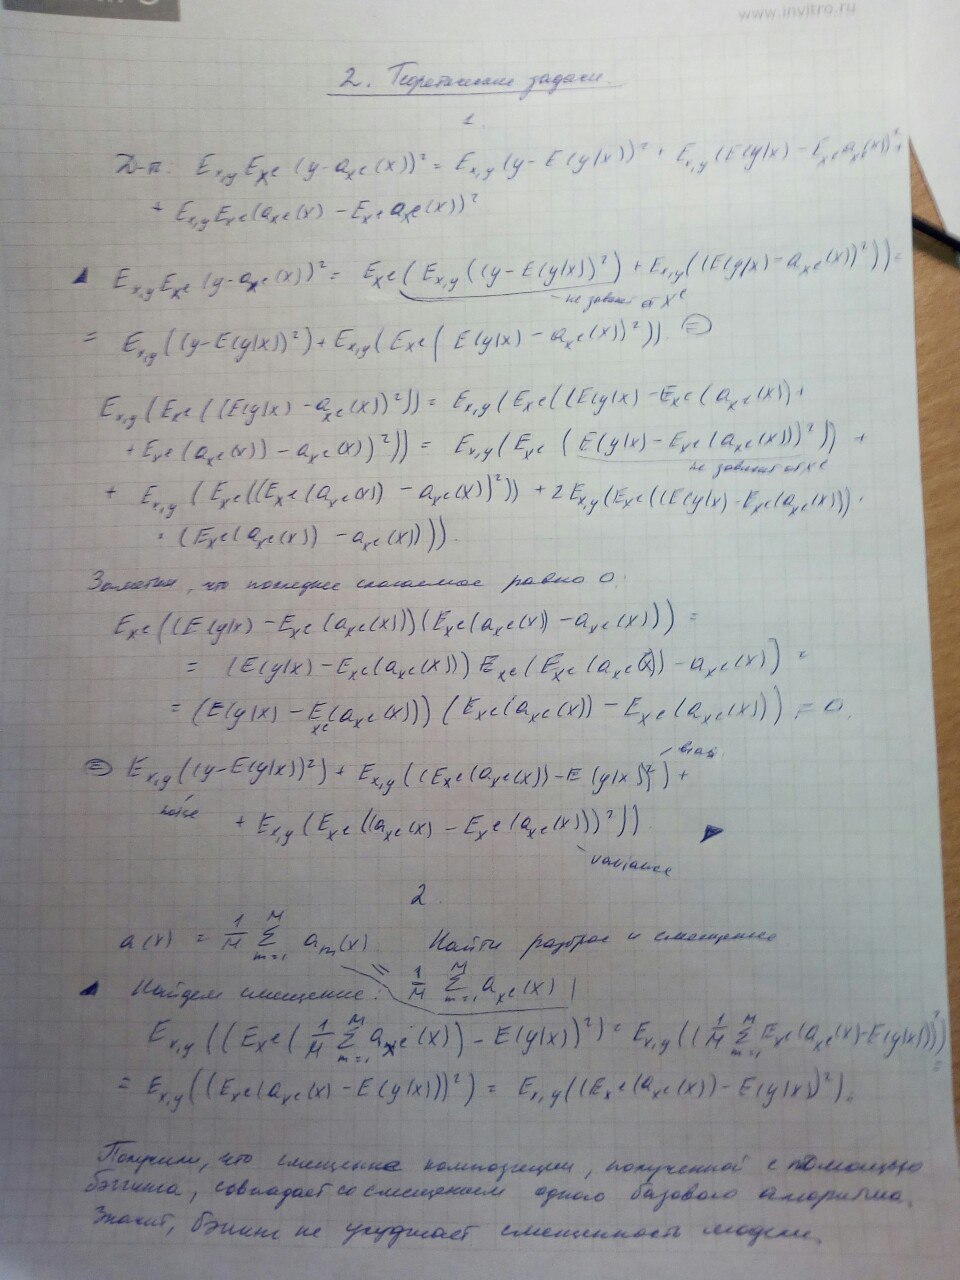 www.invitro.ru
2. Теоретические задачи.
1.
Д-ть: E_{x,y} E_{X^ℓ} (y - a_{X^ℓ}(x))² = E_{x,y} (y - E(y|x))² + E_{x,y} (E(y|x) - E_{X^ℓ} a_{X^ℓ}(x))² +
+ E_{x,y} E_{X^ℓ} (a_{X^ℓ}(x) - E_{X^ℓ} a_{X^ℓ}(x))²
E_{x,y} E_{X^ℓ} (y - a_{X^ℓ}(x))² = E_{X^ℓ} (E_{x,y} ((y - E(y|x))²) + E_{x,y} ((E(y|x) - a_{X^ℓ}(x))²)) =
- не зависит от X^ℓ
= E_{x,y} ((y - E(y|x))²) + E_{x,y} (E_{X^ℓ} (E(y|x) - a_{X^ℓ}(x))²)) ⊜
E_{x,y} (E_{X^ℓ} ((E(y|x) - a_{X^ℓ}(x))²)) = E_{x,y} (E_{X^ℓ} ((E(y|x) - E_{X^ℓ} (a_{X^ℓ}(x) +
+ E_{X^ℓ} (a_{X^ℓ}(x)) - a_{X^ℓ}(x))²)) = E_{x,y} (E_{X^ℓ} (E(y|x) - E_{X^ℓ} (a_{X^ℓ}(x)))²)) +
не зависит от X^ℓ
+ E_{x,y} (E_{X^ℓ} ((E_{X^ℓ} (a_{X^ℓ}(x)) - a_{X^ℓ}(x))²)) + 2 E_{x,y} (E_{X^ℓ} ((E(y|x) - E_{X^ℓ} (a_{X^ℓ}(x))) ·
· (E_{X^ℓ} (a_{X^ℓ}(x)) - a_{X^ℓ}(x)))).
Заметим, что последнее слагаемое равно 0.
E_{X^ℓ} ((E(y|x) - E_{X^ℓ} (a_{X^ℓ}(x))) (E_{X^ℓ} (a_{X^ℓ}(x)) - a_{X^ℓ}(x))) =
= (E(y|x) - E_{X^ℓ} (a_{X^ℓ}(x))) E_{X^ℓ} (E_{X^ℓ} (a_{X^ℓ}(x)) - a_{X^ℓ}(x)) =
= (E(y|x) - E_{X^ℓ} (a_{X^ℓ}(x))) (E_{X^ℓ} (a_{X^ℓ}(x)) - E_{X^ℓ} (a_{X^ℓ}(x))) = 0.
⊜ E_{x,y} ((y - E(y|x))²) + E_{x,y} ((E_{X^ℓ} (a_{X^ℓ}(x)) - E(y|x))²) +
noise
bias
+ E_{x,y} (E_{X^ℓ} ((a_{X^ℓ}(x) - E_{X^ℓ} (a_{X^ℓ}(x)))²))
variance
2.
a(x) = 1/M Σ_{m=1}^{M} a_m(x). Найти разброс и смещение
Найдем смещение: = 1/M Σ_{m=1}^{M} a_{X^ℓ}(x)
E_{x,y} ((E_{X^ℓ} (1/M Σ_{m=1}^{M} a_{X^ℓ}(x)) - E(y|x))²) = E_{x,y} ((1/M Σ_{m=1}^{M} E_{X^ℓ} (a_{X^ℓ}(x) - E(y|x)))²) =
= E_{x,y} ((E_{X^ℓ} (a_{X^ℓ}(x) - E(y|x)))²) = E_{x,y} ((E_{X^ℓ} (a_{X^ℓ}(x)) - E(y|x))²).
Получили, что смещение композиции, полученной с помощью
бэггинга, совпадает со смещением одного базового алгоритма.
Значит, бэггинг не ухудшает смещенность модели.